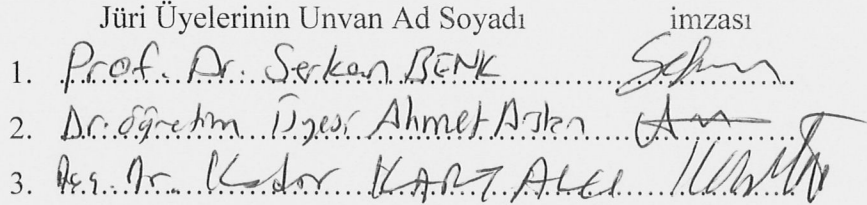 Jüri Üyelerinin Unvan Ad Soyadı imzası
1. Prof. Dr. Serkan BENK
2. Dr. öğretim Üyesi Ahmet Aslan
3. Doç. Dr. KARTALCI